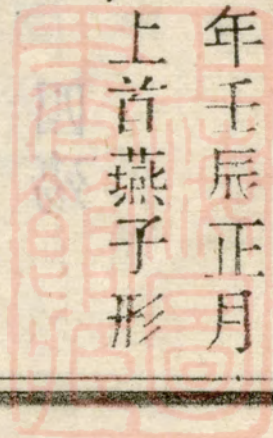 年壬辰正月
上首燕子形